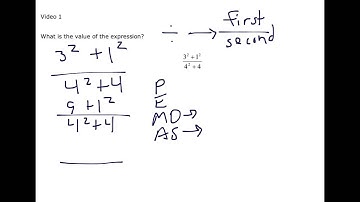 Video 1
What is the value of the expression?
3² + 1²
4² + 4
9 + 1²
4² + 4
÷ → first
second
3² + 1²
4² + 4
P
E
MD→
AS→